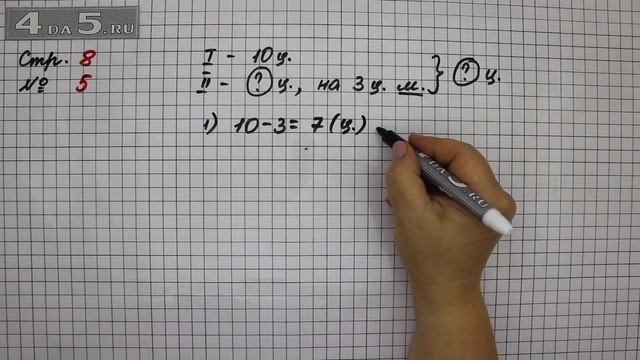 4DA5.RU
Стр. 8
№ 5
I - 10 ц.
II - ? ц., на 3 ц. м. } ? ц.
1) 10-3= 7 (ц.)
DA5.RU